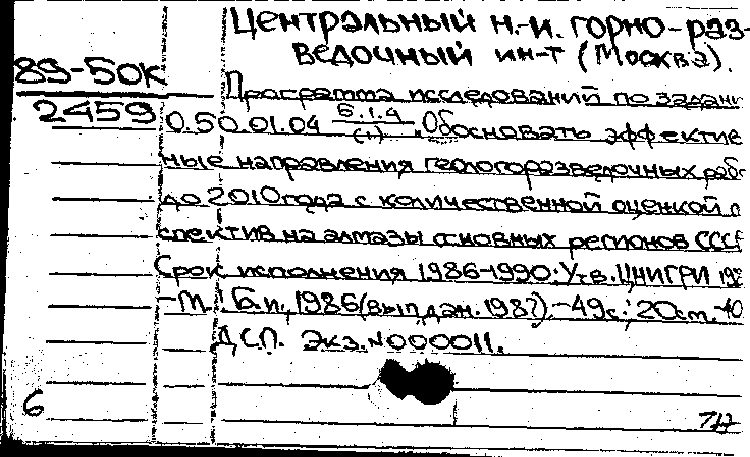 Центральный н.-и. горно-раз-
ведочный ин-т (Москва).
89-50К
2459
Программа исследований по задани
0.50.01.04 Б.1.4 (1). „Обосновать эффектив
ные направления геологоразведочных раб
до 2010 года с количественной оценкой п
спектив на алмазы основных регионов СССР
Срок исполнения 1986-1990. Утв. ЦНИГРИ 198
-М.: Б.и., 1986 (вып.дан. 1987). -49с.; 20см. -40
ДСП. Экз. N000011.
6